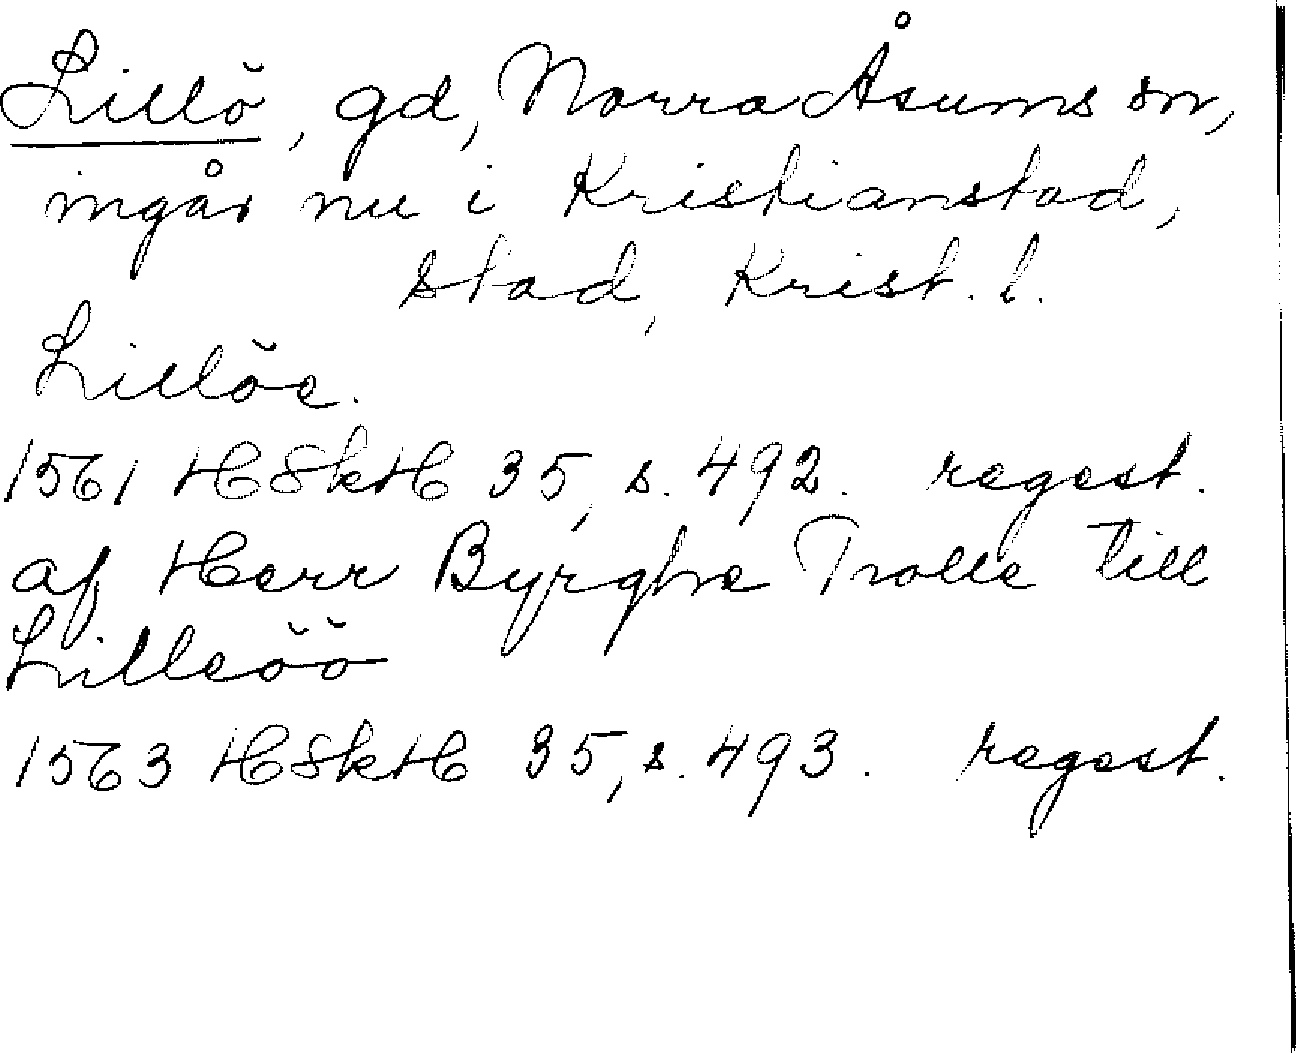 Lillö, gd, Norra Åsums sn,
ingår nu i Kristianstad,
stad, Krist. l.
Lillöe.
1561 HSkH 35, s. 492. regest.
af Herr Byrghe Trolle till
Lilleöö
1563 HSkH 35, s. 493. regest.